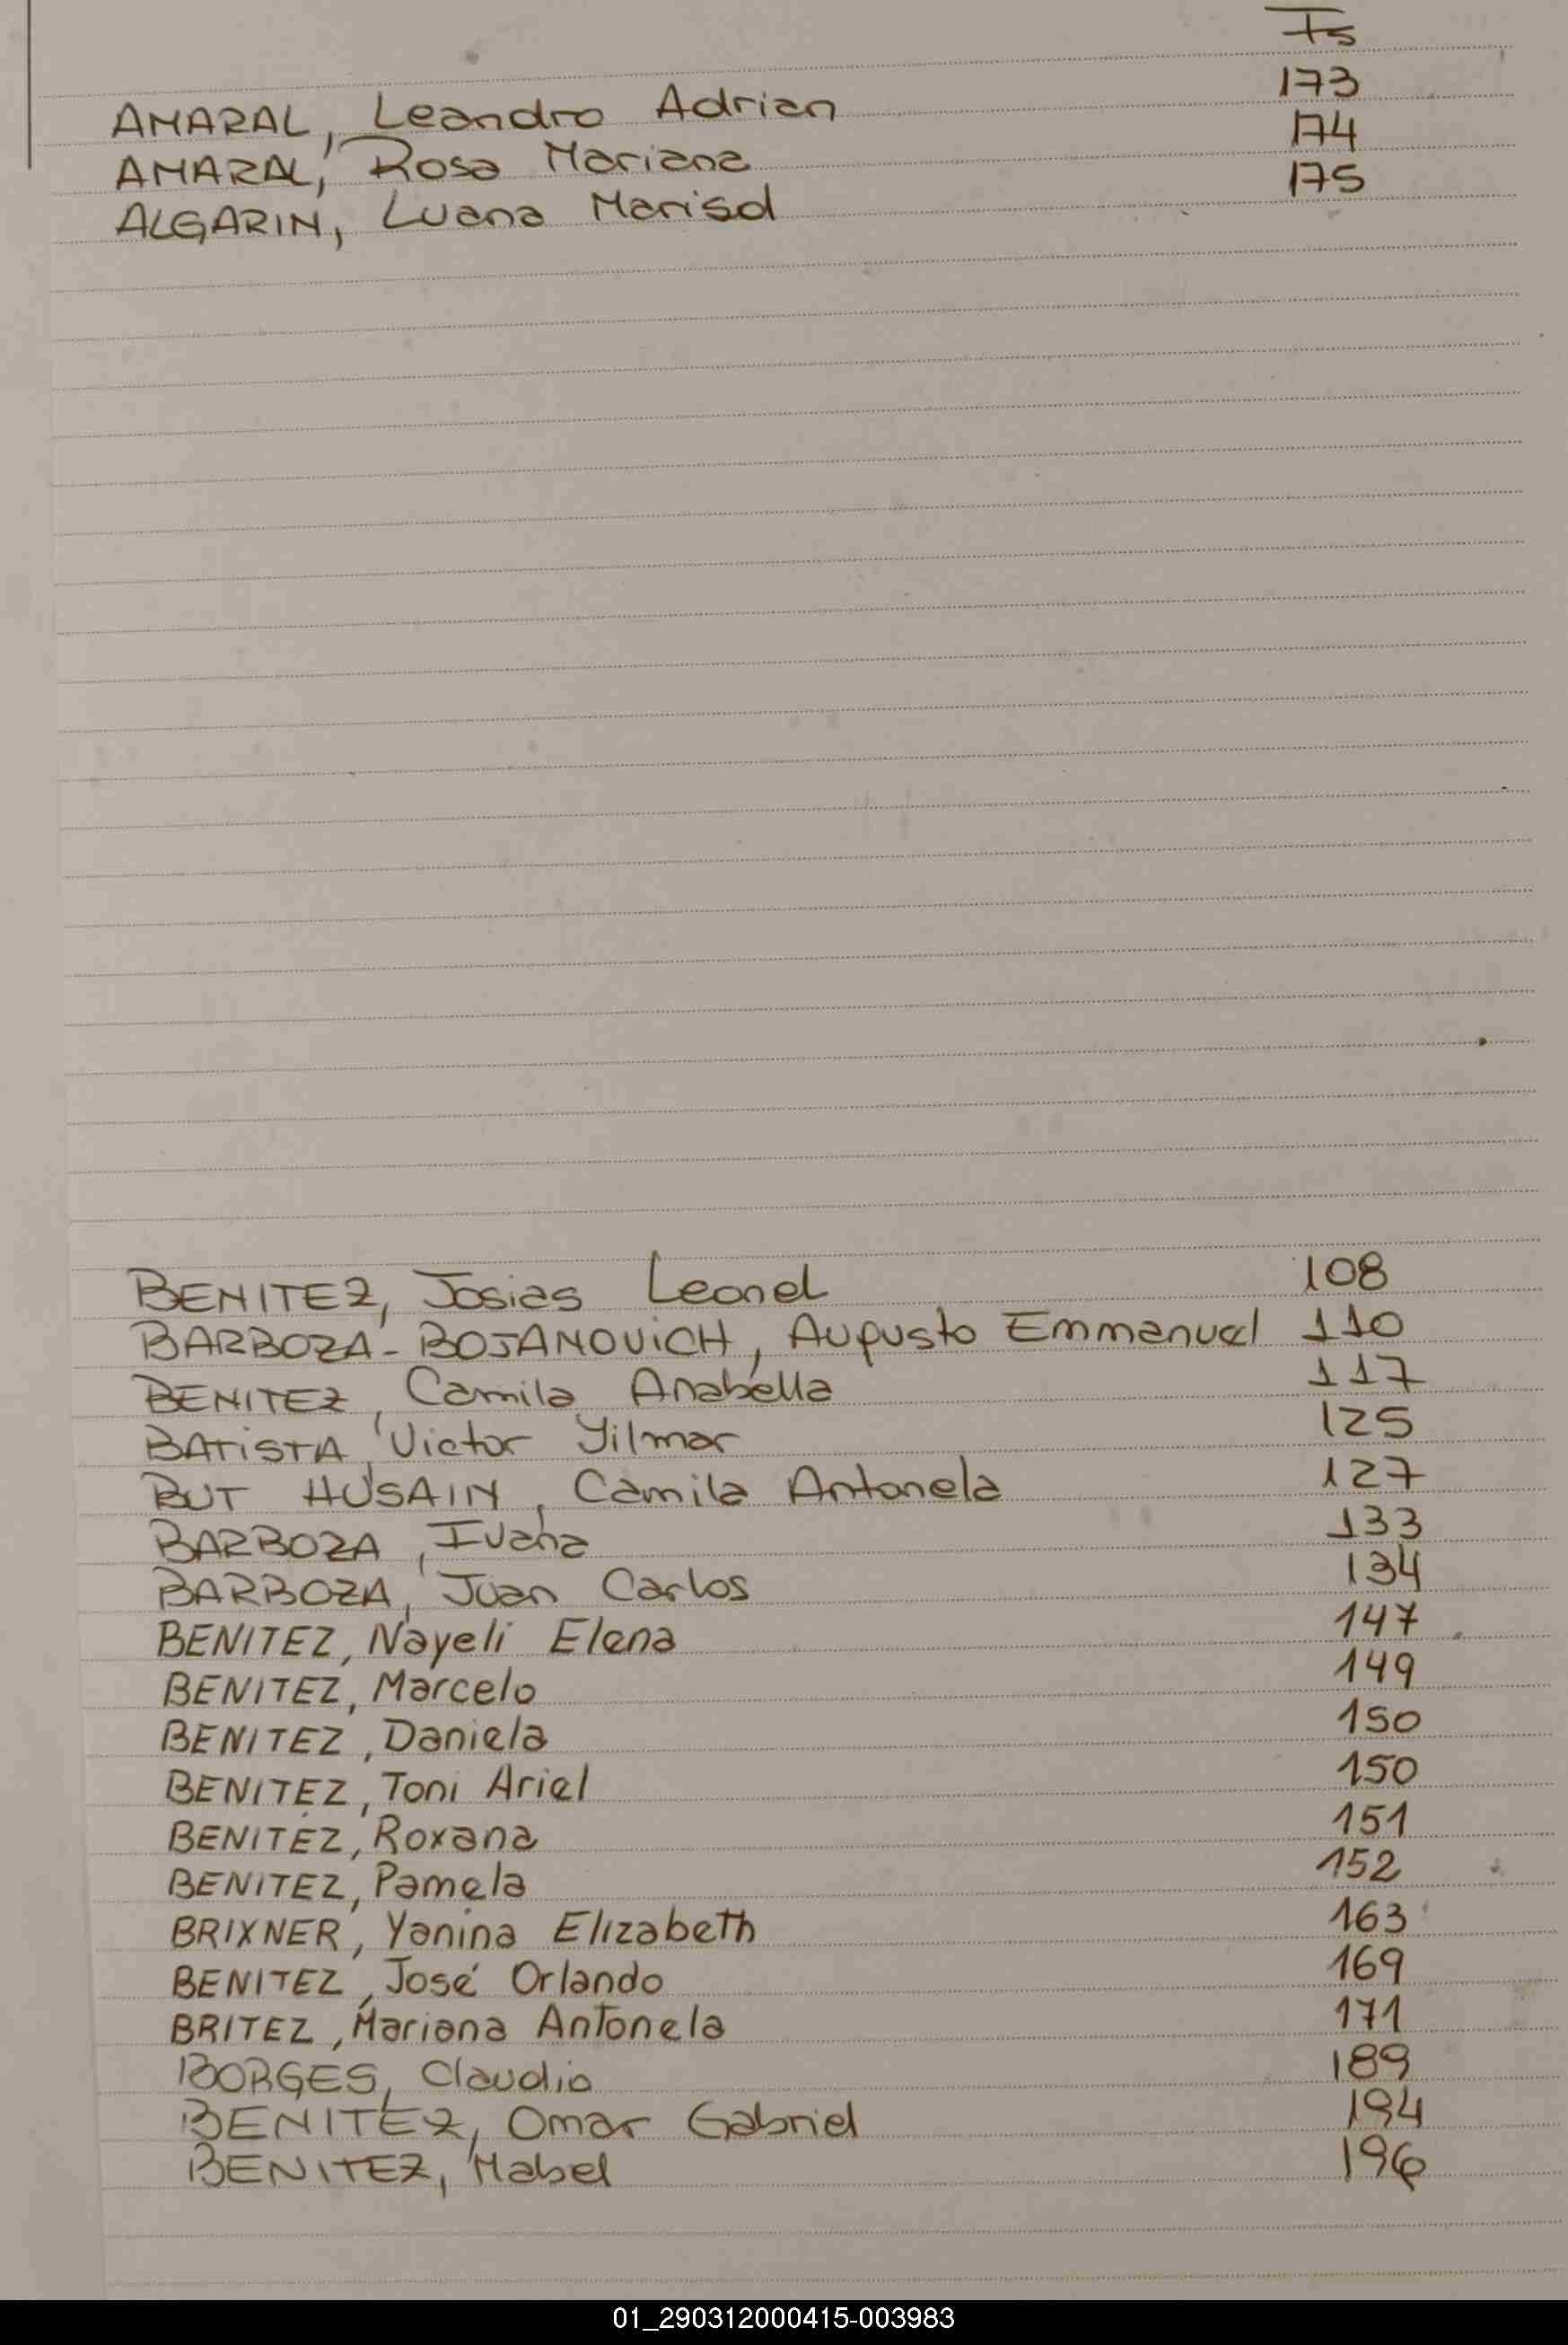 Fs
AMARAL, Leandro Adrian 173
AMARAL, Rosa Mariana 174
ALGARIN, Luana Marisol 175
BENITEZ, Josias Leonel 108
BARBOZA-BOJANOVICH, Augusto Emmanuel 110
BENITEZ, Camila Anabella 117
BATISTA, Victor Yilmar 125
BUT HUSAIN, Camila Antonela 127
BARBOZA, Ivana 133
BARBOZA, Juan Carlos 134
BENITEZ, Nayeli Elena 147
BENITEZ, Marcelo 149
BENITEZ, Daniela 150
BENITEZ, Toni Ariel 150
BENITEZ, Roxana 151
BENITEZ, Pamela 152
BRIXNER, Yanina Elizabeth 163
BENITEZ, José Orlando 169
BRITEZ, Mariana Antonela 171
BORGES, Claudio 189
BENITEZ, Omar Gabriel 194
BENITEZ, Mabel 196
01_290312000415-003983